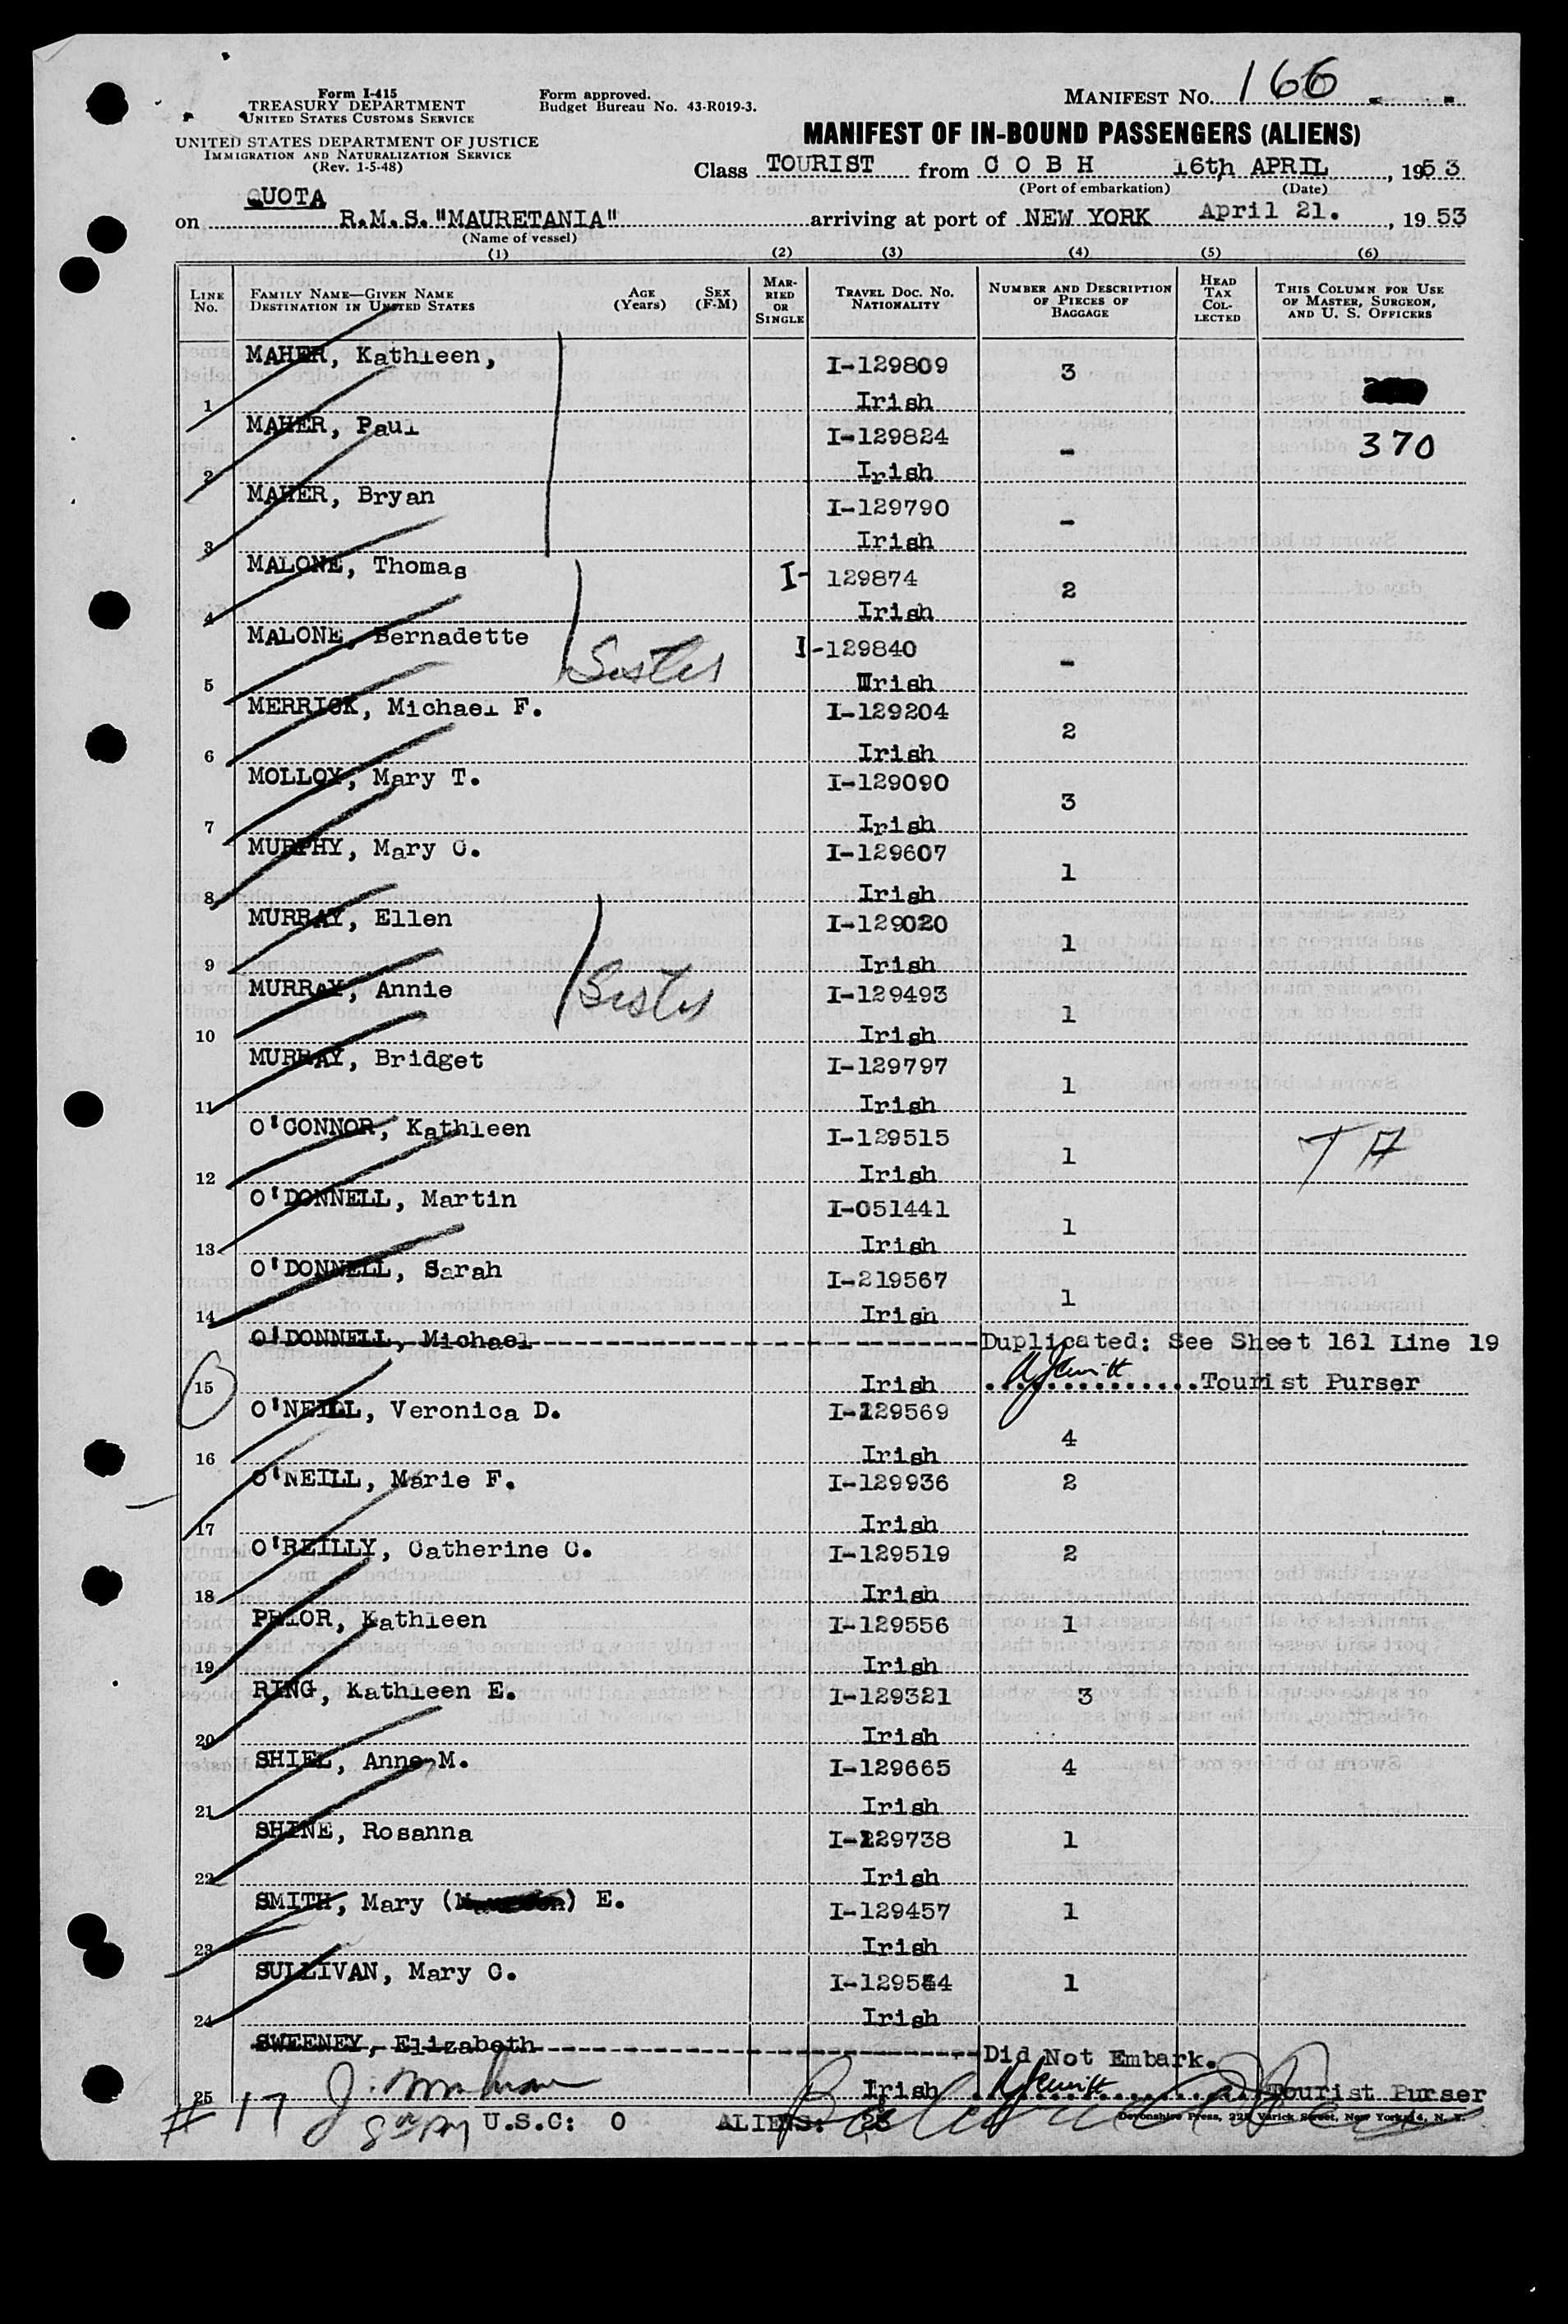 Form I-415
TREASURY DEPARTMENT
UNITED STATES CUSTOMS SERVICE
UNITED STATES DEPARTMENT OF JUSTICE
IMMIGRATION AND NATURALIZATION SERVICE
(Rev. 1-5-48)
Form approved.
Budget Bureau No. 43-R019-3.
MANIFEST No. 166
MANIFEST OF IN-BOUND PASSENGERS (ALIENS)
Class TOURIST from C O B H 16th APRIL, 1953
(Port of embarkation) (Date)
QUOTA
on R.M.S."MAURETANIA" arriving at port of NEW YORK April 21., 1953
(Name of vessel)
(1) (2) (3) (4) (5) (6)
LINE No. FAMILY NAME—GIVEN NAME DESTINATION IN UNITED STATES AGE (Years) SEX (F-M) MARRIED OR SINGLE TRAVEL DOC. NO. NATIONALITY NUMBER AND DESCRIPTION OF PIECES OF BAGGAGE HEAD TAX COLLECTED THIS COLUMN FOR USE OF MASTER, SURGEON, AND U. S. OFFICERS
MAHER, Kathleen, I-129809 3
1 Irish
MAHER, Paul I-129824 - 370
2 Irish
MAHER, Bryan I-129790 -
3 Irish
MALONE, Thomas I- 129874 2
4 Irish
MALONE, Bernadette Sister I-129840 -
5 Irish
MERRICK, Michael F. I-129204 2
6 Irish
MOLLOY, Mary T. I-129090 3
7 Irish
MURPHY, Mary C. I-129607 1
8 Irish
MURRAY, Ellen I-129020 1
9 Irish
MURRAY, Annie Sister I-129493 1
10 Irish
MURRAY, Bridget I-129797 1
11 Irish
O'CONNOR, Kathleen I-129515 1
12 Irish
O'DONNELL, Martin I-051441 1
13 Irish
O'DONNELL, Sarah I-219567 1
14 Irish
O'DONNELL, Michael Duplicated: See Sheet 161 Line 19
15 Irish Tourist Purser
O'NEILL, Veronica D. I-129569 4
16 Irish
O'NEILL, Marie F. I-129936 2
17 Irish
O'REILLY, Catherine C. I-129519 2
18 Irish
PRIOR, Kathleen I-129556 1
19 Irish
RING, Kathleen E. I-129321 3
20 Irish
SHIEL, Anne M. I-129665 4
21 Irish
SHINE, Rosanna I-129738 1
22 Irish
SMITH, Mary ( ) E. I-129457 1
23 Irish
SULLIVAN, Mary C. I-129544 1
24 Irish
SWEENEY, Elizabeth Did Not Embark.
25 Irish Tourist Purser
# 17 U.S.C: 0 ALIENS: 23
Devonshire Press, 225 Varick Street, New York 14, N. Y.